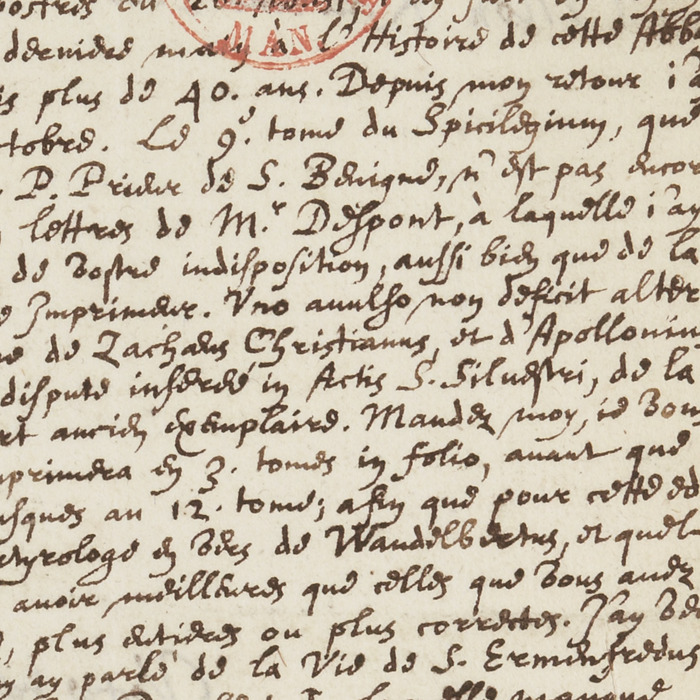 derniere main à l'Histoire de cette Abb
is plus de 40. ans. Depuis mon retour i'
tobre. Le 9.e tome du Spicilegium, que
P. Prieur de S. Benigne, n'est pas encor
lettres de M.r Despont, à laquelle i'ay
de vostre indisposition, aussi bien que de la
e Imprimeur. Vno auulso non deficit alter
ue de Zachæus Christianus, et d'Apollonius
dispute inserée in Actis S. Siluestri, de la
rt ancien exemplaire. Mandez moy, ie vous
mprimera en 3. tomes in folio, auant que
usques au 12. tome; afin que pour cette ed
rtyrologe en vers de Wandelbertus, et quel
auoir meilleures que celles que vous auez
, plus entieres ou plus correctes. J'ay ve
y ay parlé de la Vie de S. Ermenfredus